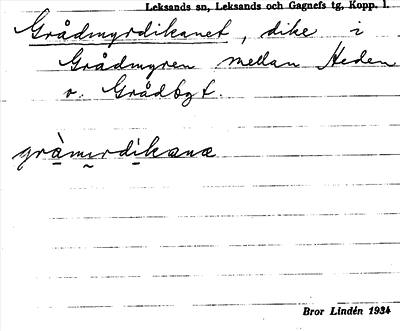 Leksands sn, Leksands och Gagnefs tg, Kopp. l.
Grådmyrdikanet, dike i
Grådmyren mellan Heden
o. Grådbyt.
gràmırdìkana
Bror Lindén 1934